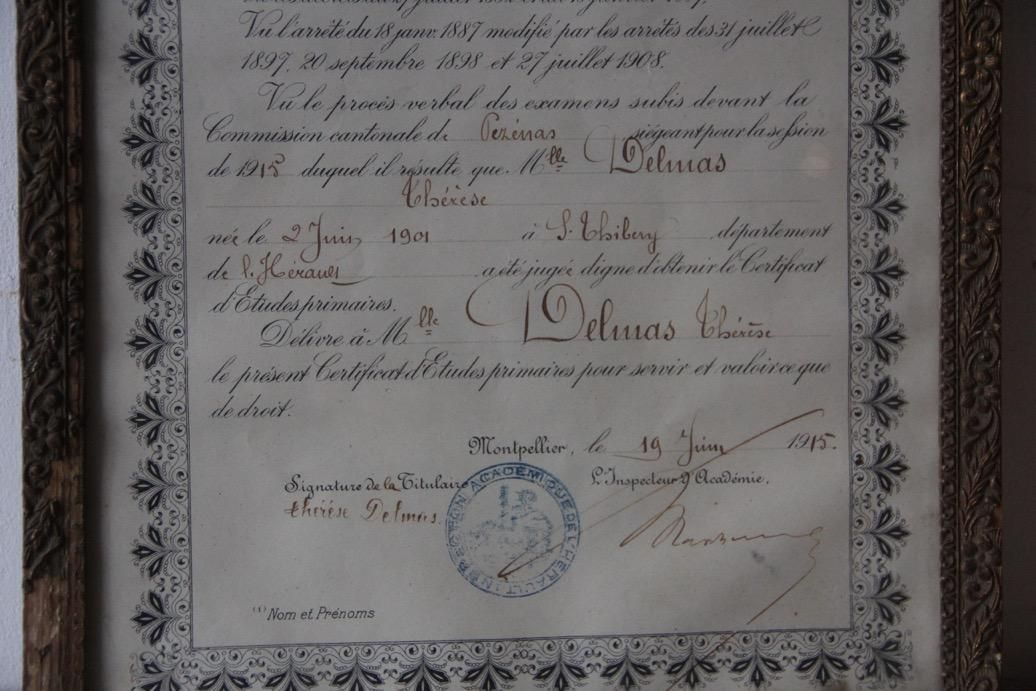 Vu l'arrêté du 18 janv. 1887 modifié par les arrêtés des 31 juillet
1897, 20 septembre 1898 et 27 juillet 1908.
Vu le procès verbal des examens subis devant la
Commission cantonale de Pézénas siégeant pour la session
de 1915 duquel il résulte que Mlle Delmas
Thérèse
née le 2 Juin 1901 à S. Thibery département
de l'Hérault a été jugée digne d'obtenir le Certificat
d'Etudes primaires.
Délivré à Mlle Delmas Thérèse
le présent Certificat d'Etudes primaires pour servir et valoir ce que
de droit.
Montpellier, le 19 Juin 1915.
Signature de la Titulaire
L'Inspecteur d'Académie,
thérèse Delmas
INSPECTION ACADÉMIQUE DE L'HÉRAULT
(1) Nom et Prénoms